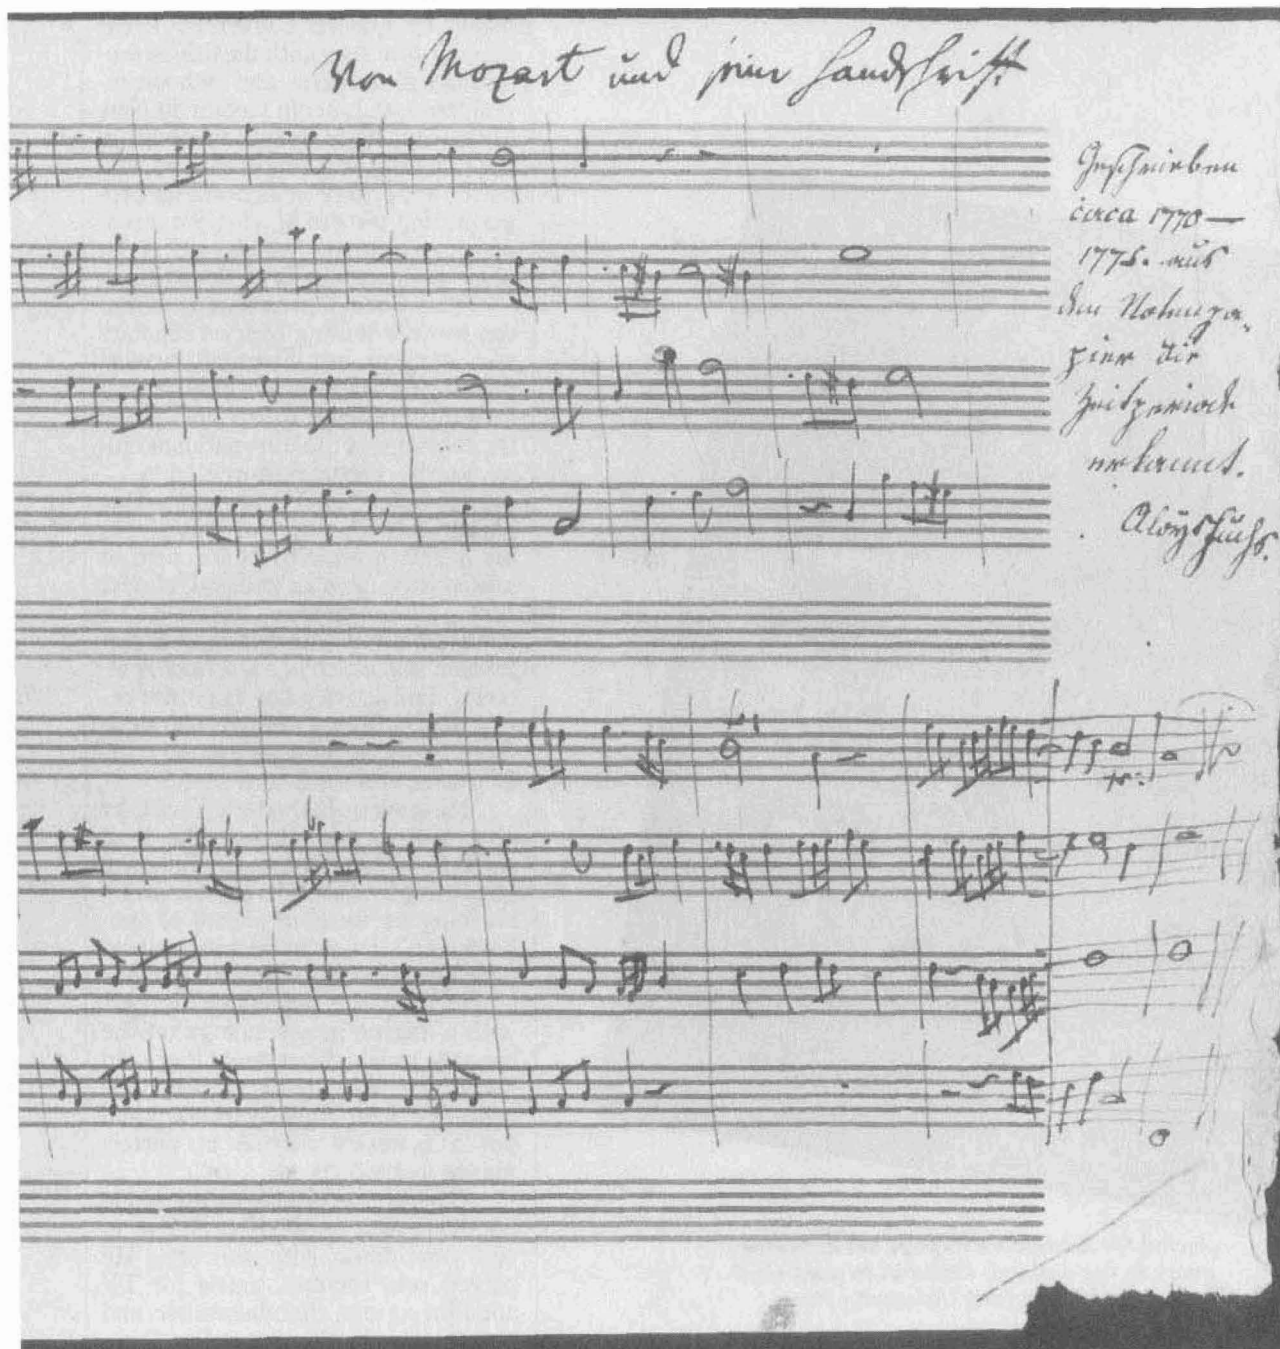 Von Mozart und seine Handschrift
Geschrieben
circa 1770 —
1775. aus
dem Notenpa-
pier die
Zeitperiode
erkannt.
Aloys Fuchs.